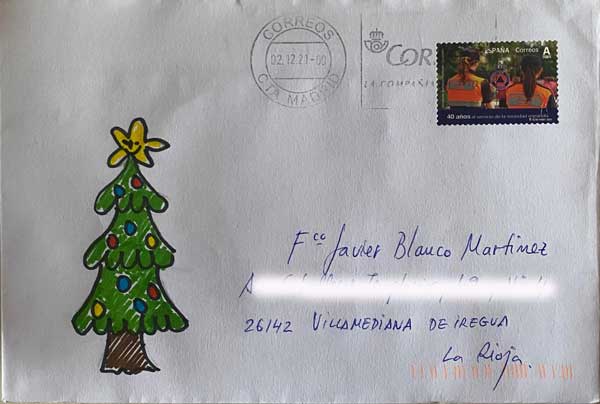 CORREOS
02.12.21-00
CTA MADRID
COR
LA COMPAÑ
ESPAÑA Correos A
40 años al servicio de la sociedad española
Fco Javier Blanco Martinez
26142 VILLAMEDIANA DE IREGUA
La Rioja.